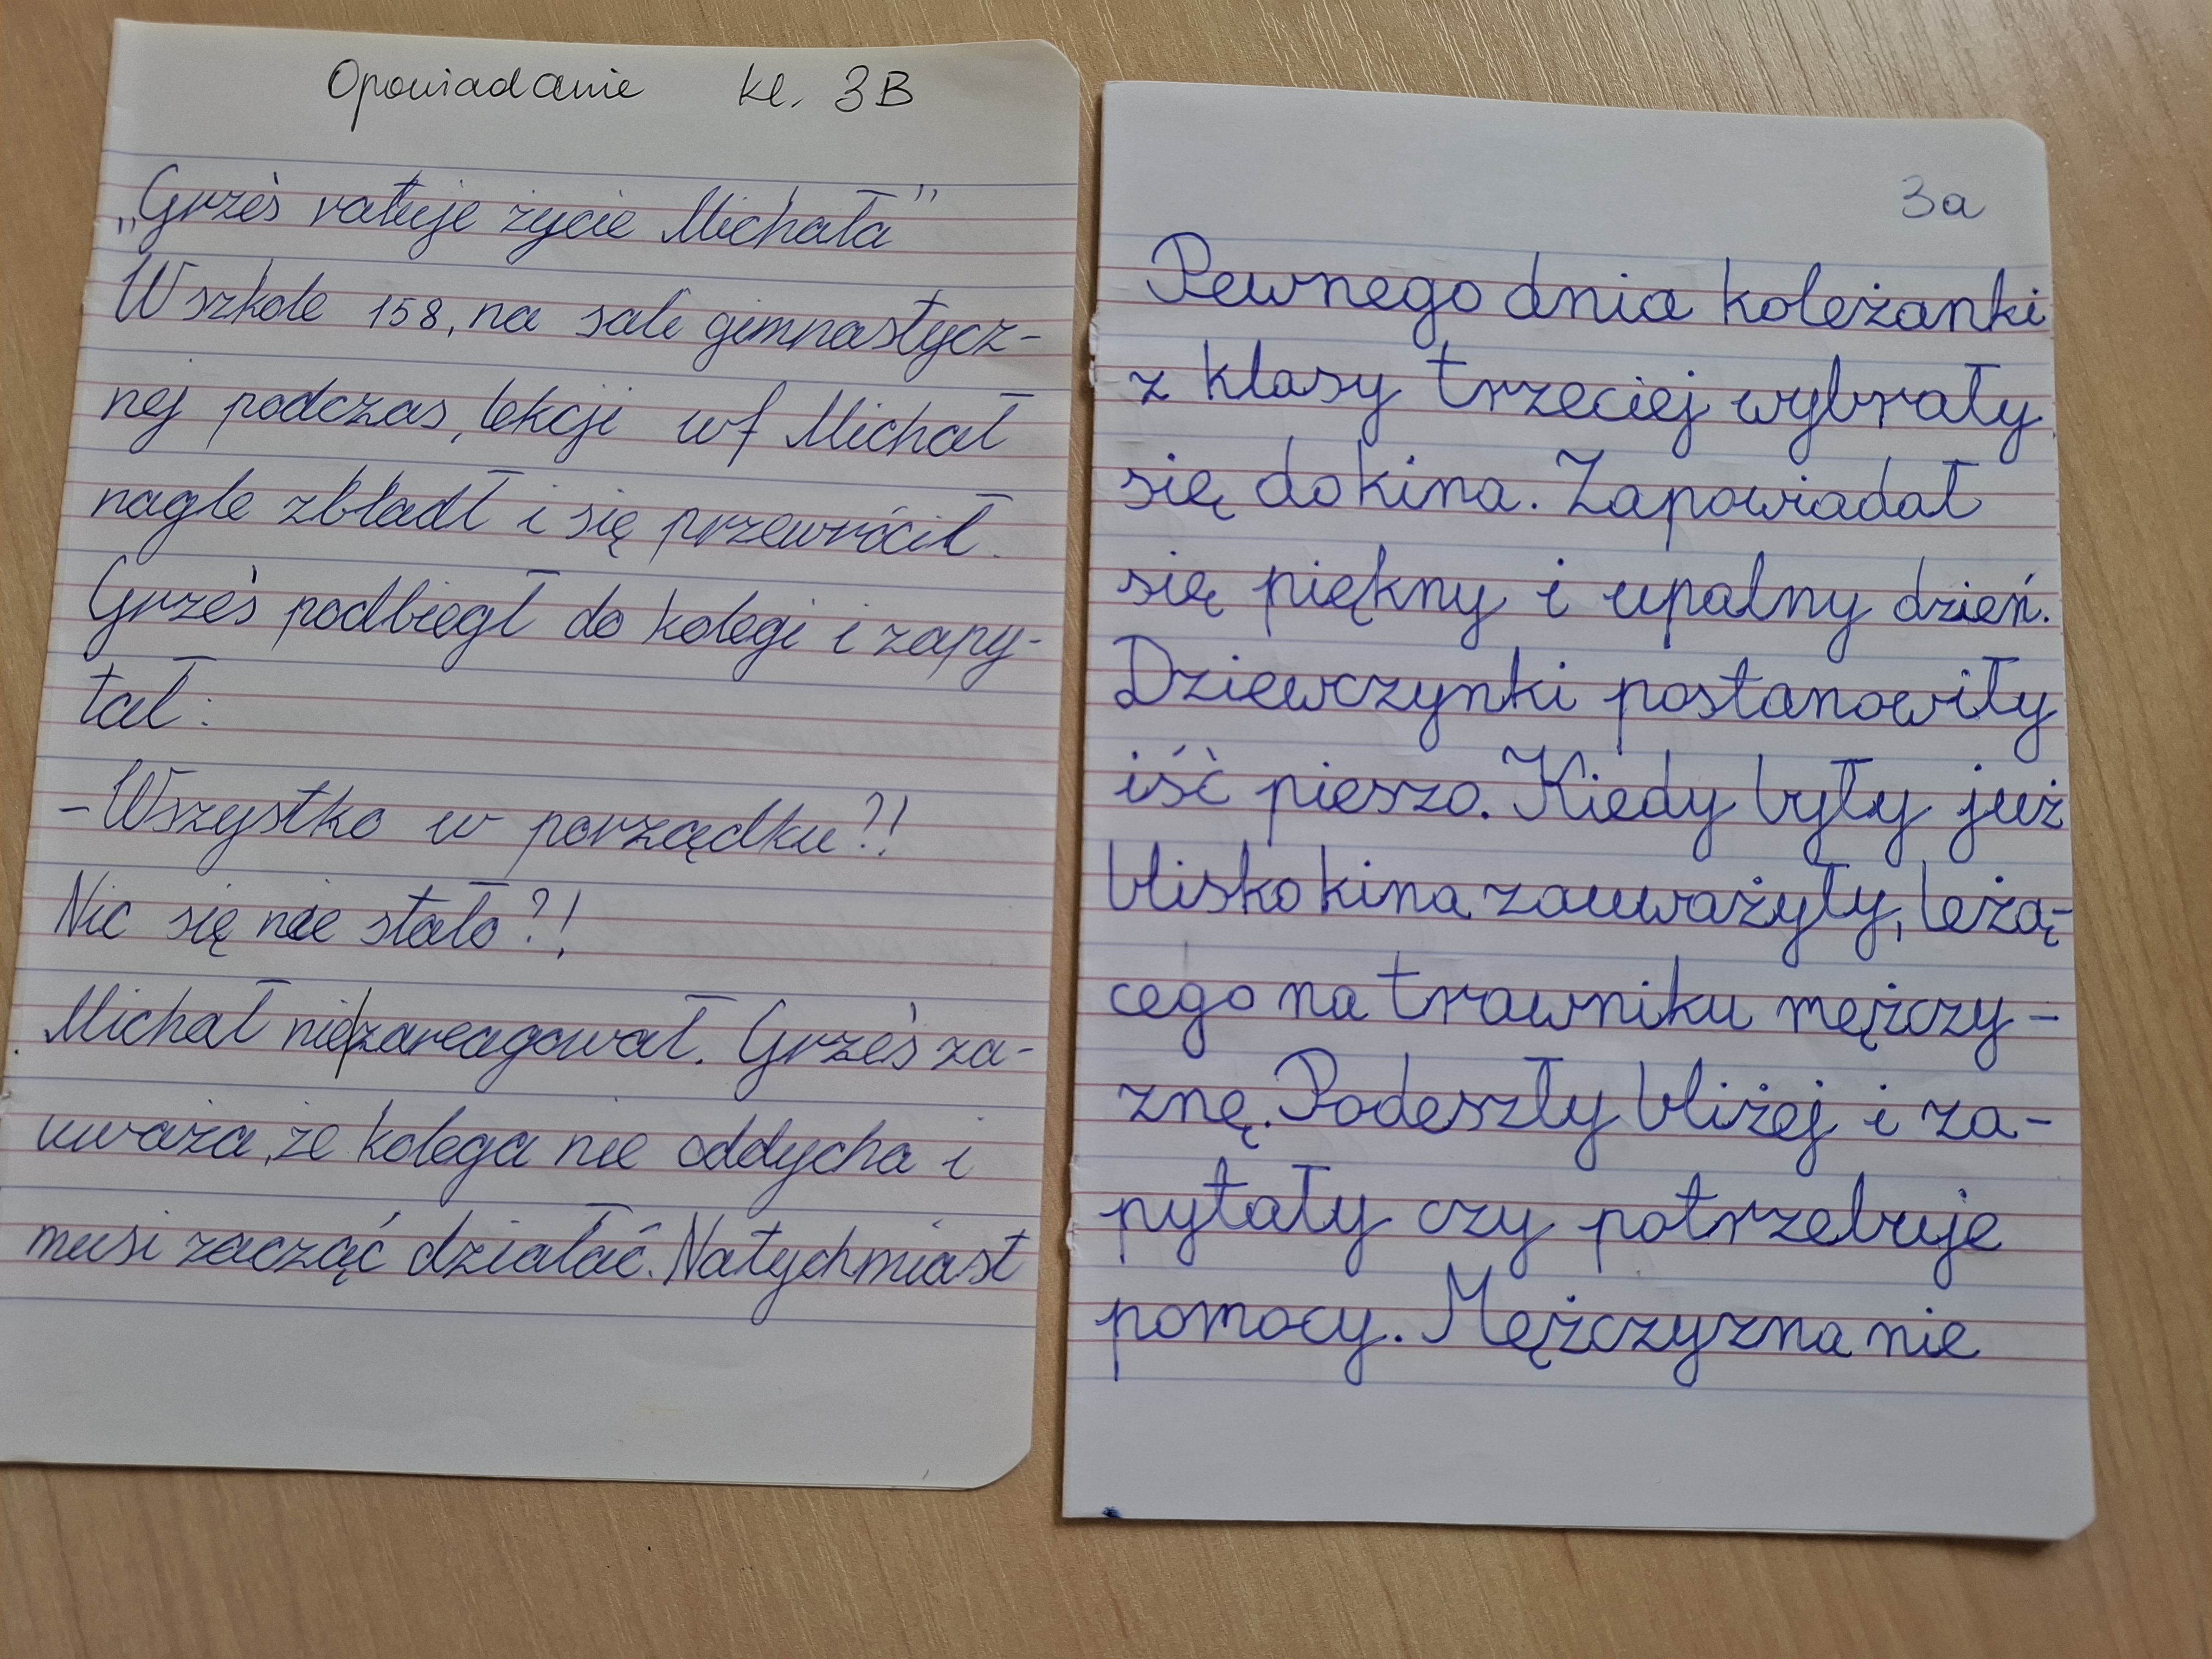 Opowiadanie kl. 3B
„Grześ ratuje życie Michała”
W szkole 158, na sali gimnastycz-
nej podczas, lekcji wf Michał
nagle zbladł i się przewrócił.
Grześ podbiegł do kolegi i zapy-
tał:
- Wszystko w porządku?!
Nic się nie stało?!
Michał nie|zareagował. Grześ za-
uważa, że kolega nie oddycha i
musi zacząć działać. Natychmiast
3a
Pewnego dnia koleżanki
z klasy trzeciej wybrały
się do kina. Zapowiadał
się piękny i upalny dzień.
Dziewczynki postanowiły
iść pieszo. Kiedy były już
blisko kina zauważyły, leżą-
cego na trawniku mężczy-
znę. Podeszły bliżej i za-
pytały czy potrzebuje
pomocy. Mężczyzna nie